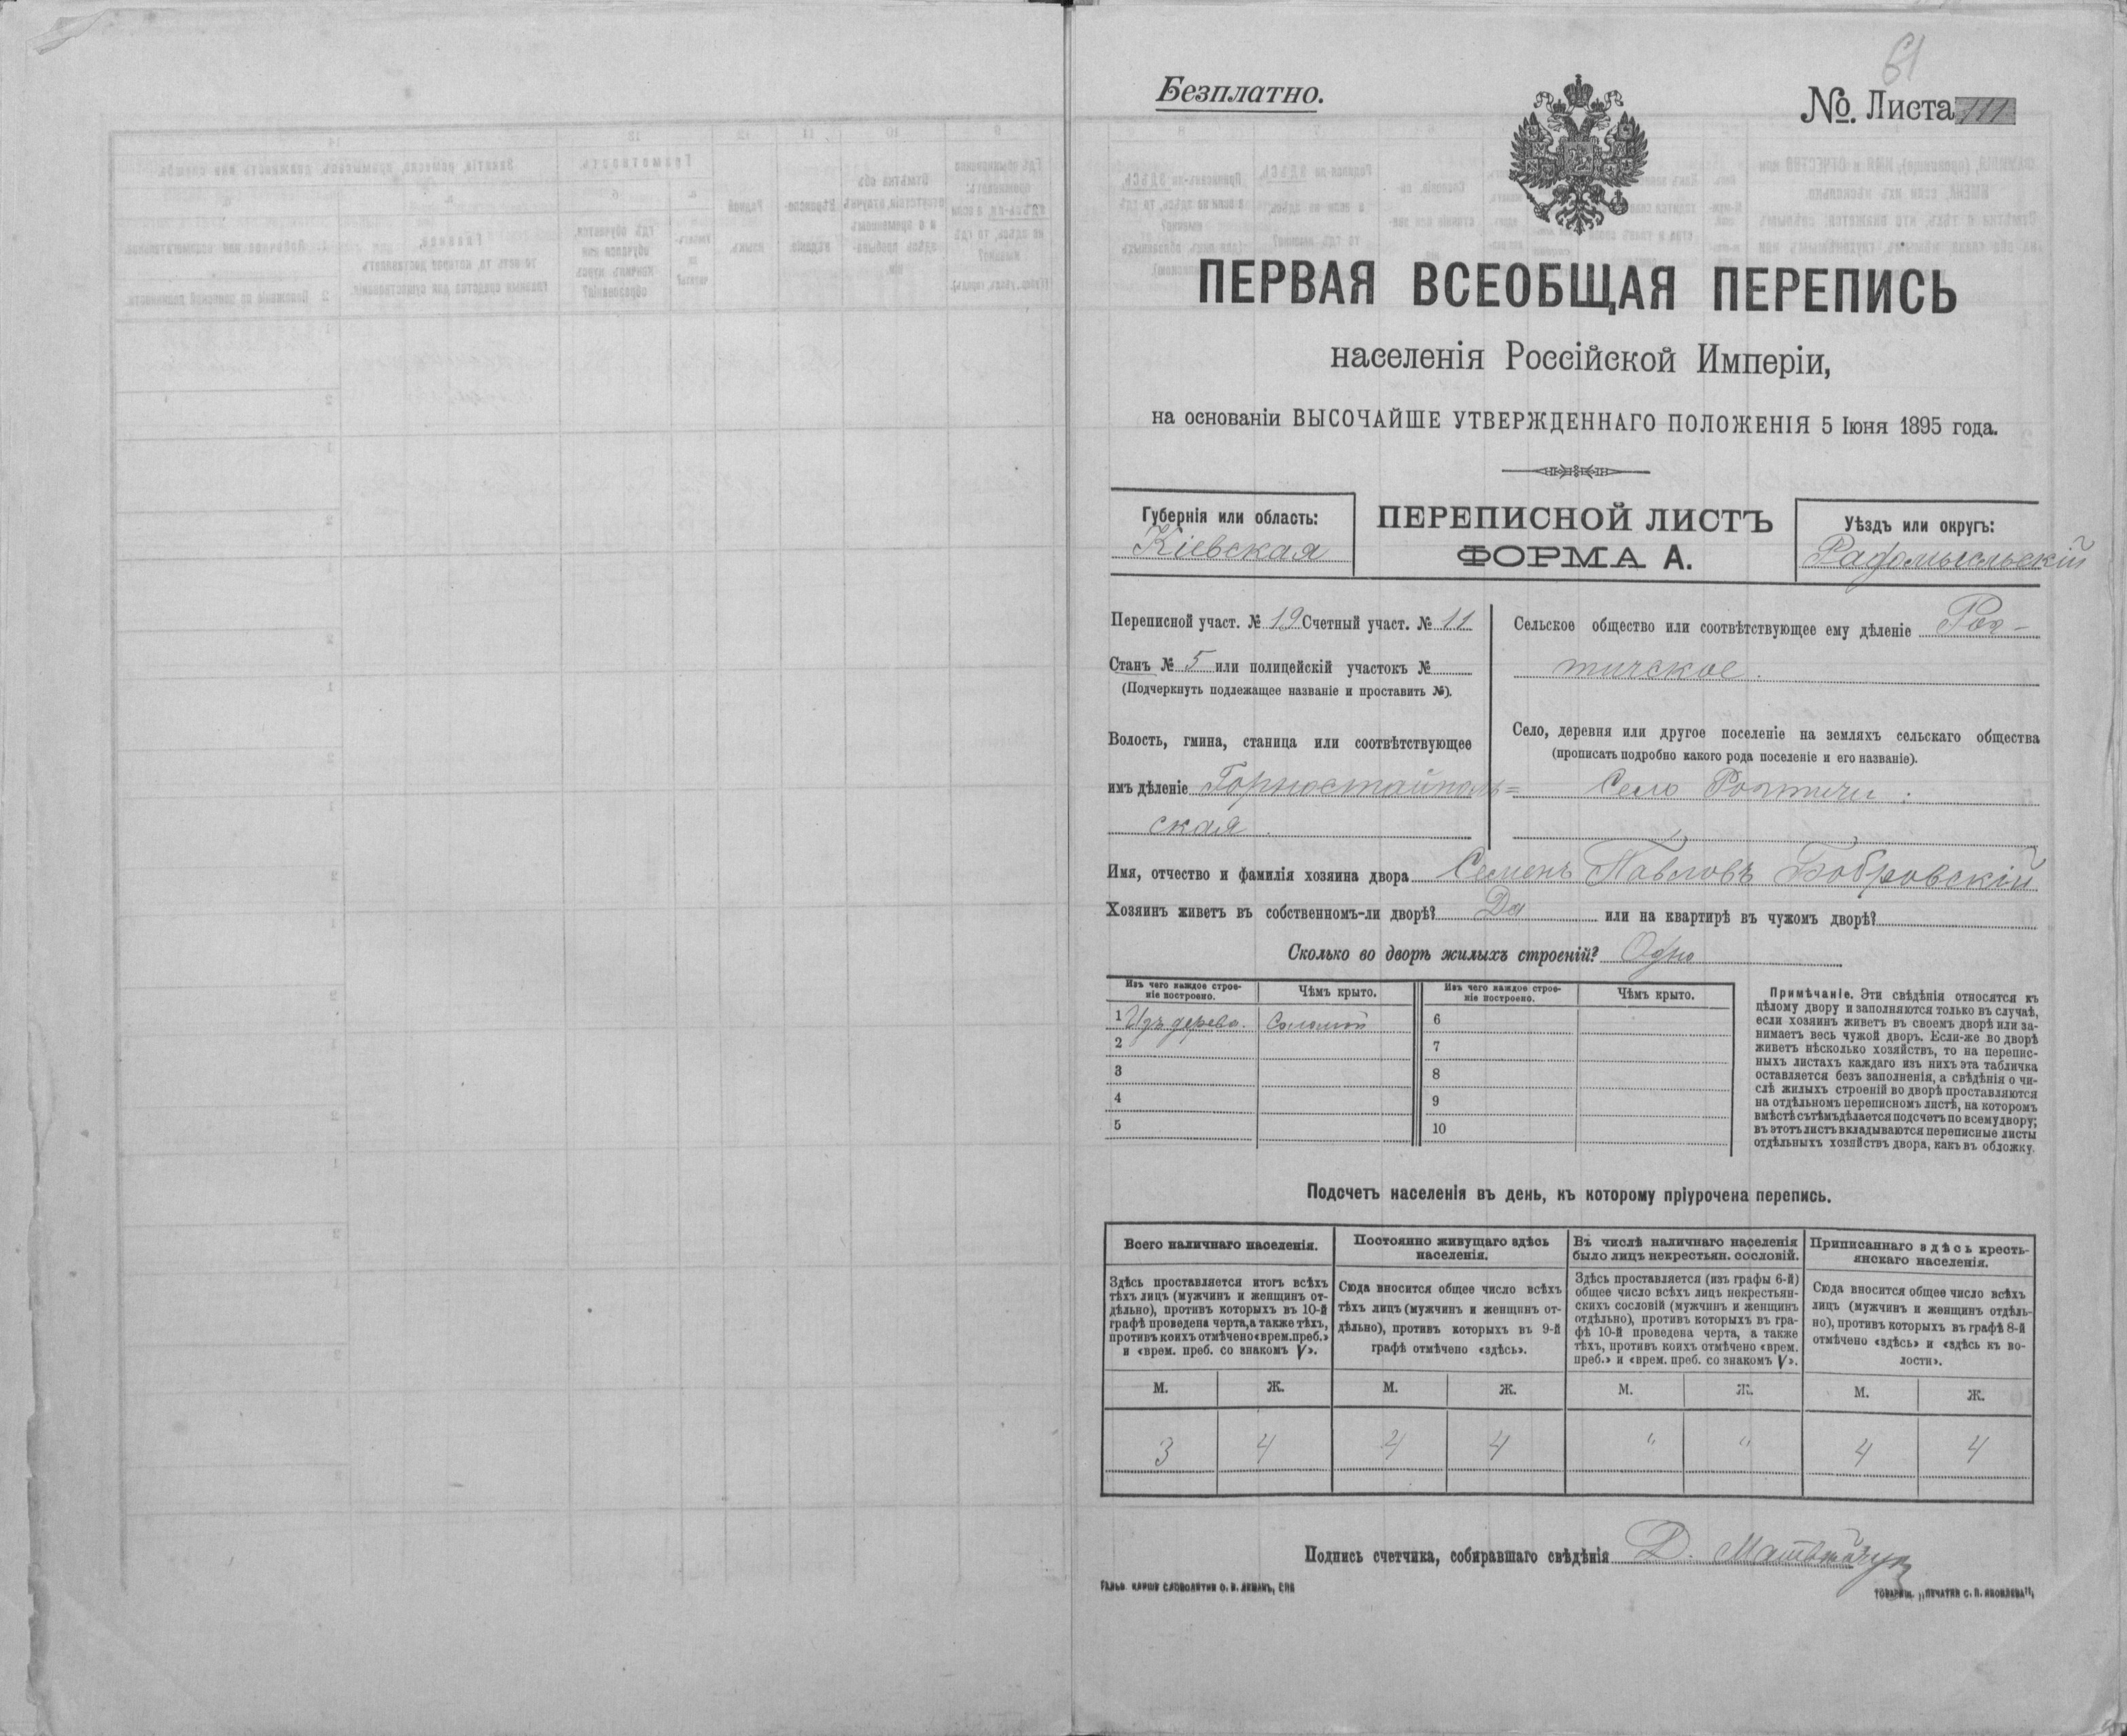 61
Безплатно.
№. Листа 111
ПЕРВАЯ ВСЕОБЩАЯ ПЕРЕПИСЬ
населенія Россійской Имперіи,
на основаніи ВЫСОЧАЙШЕ УТВЕРЖДЕННАГО ПОЛОЖЕНІЯ 5 Іюня 1895 года.
Губернія или область:
Кіевская
ПЕРЕПИСНОЙ ЛИСТЪ
ФОРМА А.
Уѣздъ или округъ:
Радомысльскій
Переписной участ. № 19 Счетный участ. № 11
Станъ № 5 или полицейскій участокъ №
(Подчеркнуть подлежащее названіе и проставить №).
Волость, гмина, станица или соотвѣтствующее
имъ дѣленіе Горностайполь=
ская.
Сельское общество или соотвѣтствующее ему дѣленіе Роя-
тичское.
Село, деревня или другое поселеніе на земляхъ сельскаго общества
(прописать подробно какого рода поселеніе и его названіе).
Село Роятичи.
Имя, отчество и фамилія хозяина двора Семенъ Павловъ Бобровскій
Хозяинъ живетъ въ собственномъ-ли дворѣ? Да или на квартирѣ въ чужомъ дворѣ?
Сколько во дворѣ жилыхъ строеній? Одно
Изъ чего каждое строе-
ніе построено.
Чѣмъ крыто.
Изъ чего каждое строе-
ніе построено.
Чѣмъ крыто.
1 Изъ дерева. Соломой 6
2 7
3 8
4 9
5 10
Примѣчаніе. Эти свѣдѣнія относятся къ
цѣлому двору и заполняются только въ случаѣ,
если хозяинъ живетъ въ своемъ дворѣ или за-
нимаетъ весь чужой дворъ. Если-же во дворѣ
живетъ нѣсколько хозяйствъ, то на перепис-
ныхъ листахъ каждаго изъ нихъ эта табличка
оставляется безъ заполненія, а свѣдѣнія о чи-
слѣ жилыхъ строеній во дворѣ проставляются
на отдѣльномъ переписномъ листѣ, на которомъ
вмѣстѣ съ тѣмъ дѣлается подсчетъ по всему двору;
въ этотъ листъ вкладываются переписные листы
отдѣльныхъ хозяйствъ двора, какъ въ обложку.
Подсчетъ населенія въ день, къ которому пріурочена перепись.
Всего наличнаго населенія.
Здѣсь проставляется итогъ всѣхъ
тѣхъ лицъ (мужчинъ и женщинъ от-
дѣльно), противъ которыхъ въ 10-й
графѣ проведена черта, а также тѣхъ,
противъ коихъ отмѣчено «врем. преб.»
и «врем. преб. со знакомъ V».
Постоянно живущаго здѣсь
населенія.
Сюда вносится общее число всѣхъ
тѣхъ лицъ (мужчинъ и женщинъ от-
дѣльно), противъ которыхъ въ 9-й
графѣ отмѣчено «здѣсь».
Въ числѣ наличнаго населенія
было лицъ некрестьян. сословій.
Здѣсь проставляется (изъ графы 6-й)
общее число всѣхъ лицъ некрестьян-
скихъ сословій (мужчинъ и женщинъ
отдѣльно), противъ которыхъ въ гра-
фѣ 10-й проведена черта, а также
тѣхъ, противъ коихъ отмѣчено «врем.
преб.» и «врем. преб. со знакомъ V».
Приписаннаго здѣсь кресть-
янскаго населенія.
Сюда вносится общее число всѣхъ
лицъ (мужчинъ и женщинъ отдѣль-
но), противъ которыхъ въ графѣ 8-й
отмѣчено «здѣсь» и «здѣсь къ во-
лости».
М. Ж. М. Ж. М. Ж. М. Ж.
3 4 4 4 " " 4 4
Подпись счетчика, собиравшаго свѣдѣнія Д.
ТОВАРИЩ. „ПЕЧАТНЯ С. П. ЯКОВЛЕВА",